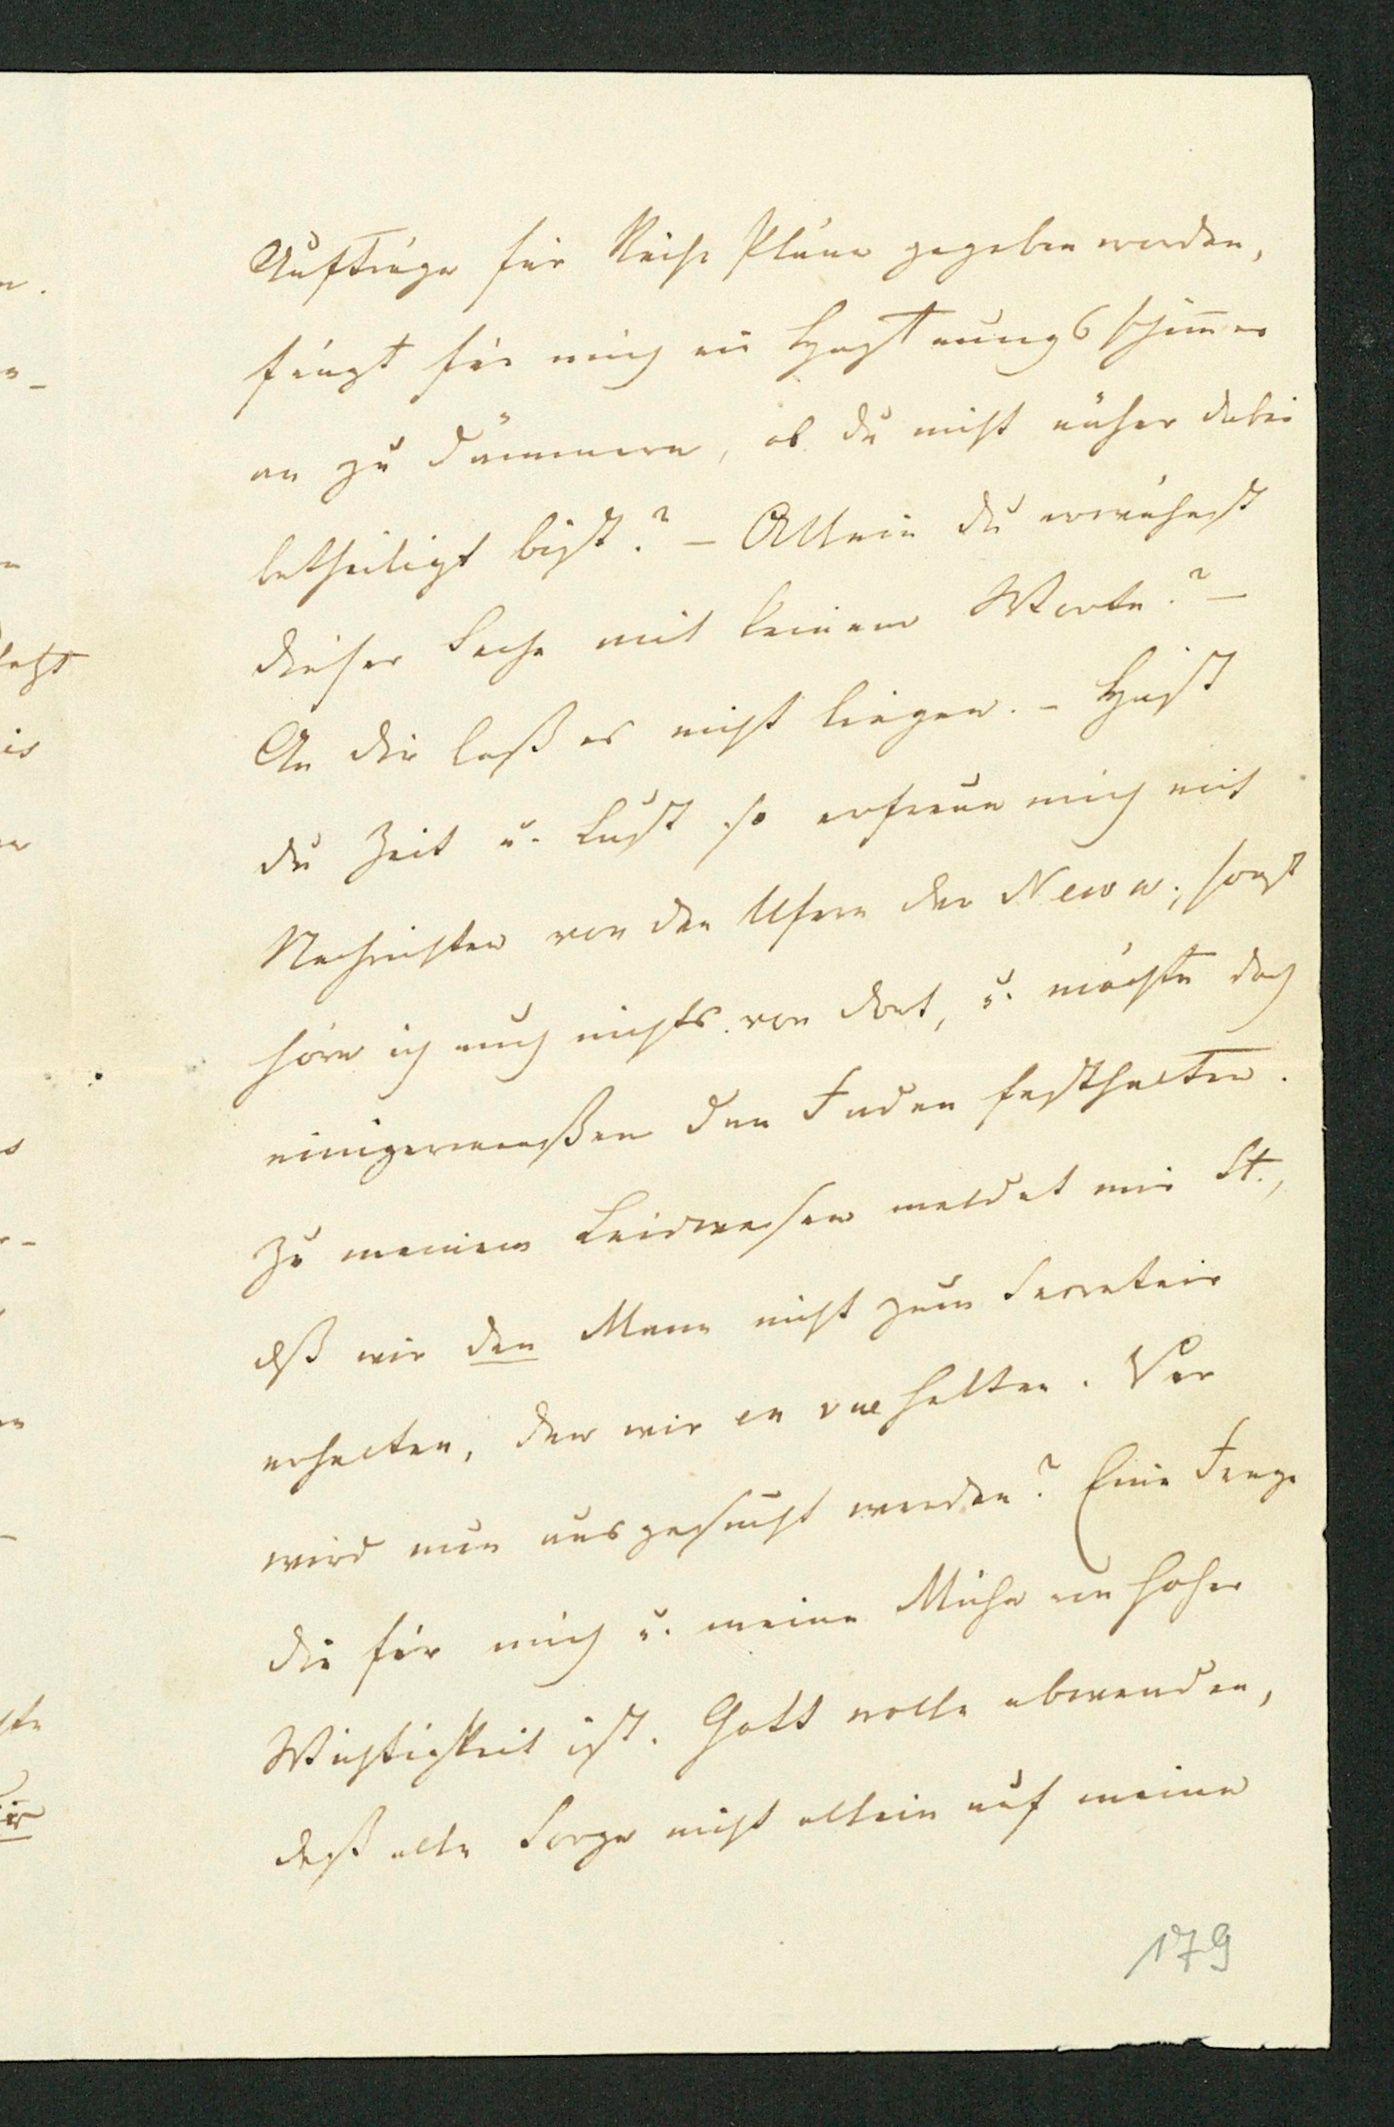 Aufträge für Reise Pläne gegeben werden,
fängt für mich ein Hoffnungsschim̄er
an zu dämmern, ob du nicht näher dabei
betheiligt bist? – Allein du erwähnst
dieser Sache mit keinem Worte? –
An dir laß es nicht liegen. – Hast
du Zeit u. Lust so erfreue mich mit
Nachrichten von den Ufern der Newa; sonst
höre ich auch nichts von dort, u. möchte doch
einigermaaßen den Faden festhalten.
Zu meinem Leidwesen meldet mir St.,
dß wir den Mann nicht zum Secretair
erhalten, den wir en vue hatten. Wer
wird nun ausgesucht werden? Eine Frage
die für mich u. meine Mühe von hoher
Wichtigkeit ist. Gott wolle abwenden,
daß alle Sorge nicht allein auf meine
179